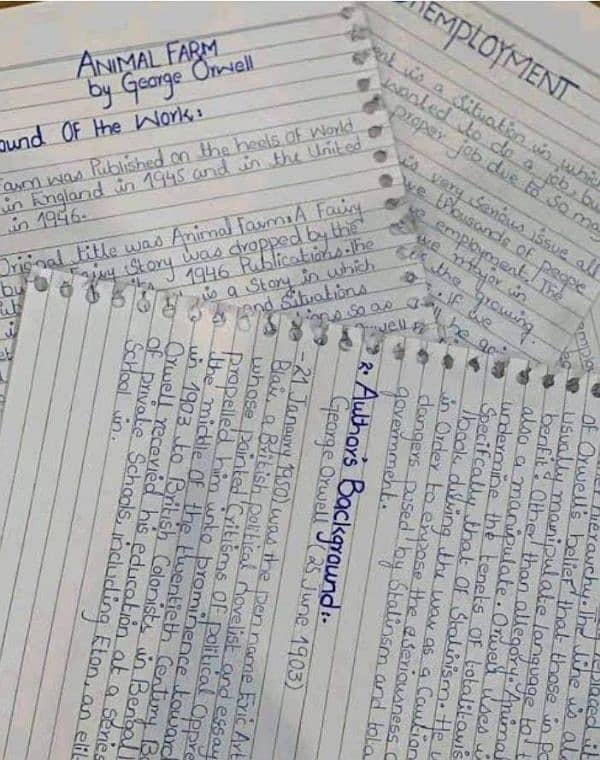 ANIMAL FARM
by George Orwell
ound Of the Work:
Farm was Published on the heels Of World
in England in 1945 and in the United
in 1946.
Original title was Animal Farm: A Fairy
Fairy Story was dropped by the
1946 Publications. the
is a Story in which
and Situations
so as
NEMPLOYMENT
is a Situation in which
wanted to do a job, but
proper job due to so ma
is very Serious issue all
thousands of people
employment. The
major in
the growing.
if we
be
hierarchy. the line is al
Of Orwell's belief that those in po
usually manipulate language to t
benfit. Other than allegory. "Animal
also a manipulate. Orwell uses i
undermine the tenets Of totalitavis
Specifcally that Of Stalinism. He w
book during the war as a Caution
in Order to expose the seriousness o
dangers posed by Stalinism and tota
government.
2. Author's Background:.
George Orwell (25 June 1903)
- 21 January 1950) was the pen name Eric Art
Blair, a British political novelist and essay
whose pointed Critisms of political Oppre
Propelled him into prominence toward
the middle Of the twentieth Century. B
in 1903 to British Colonists in Bengal
Orwell recevied his education at a series
of private Schools, including Eton, an elit
School in.